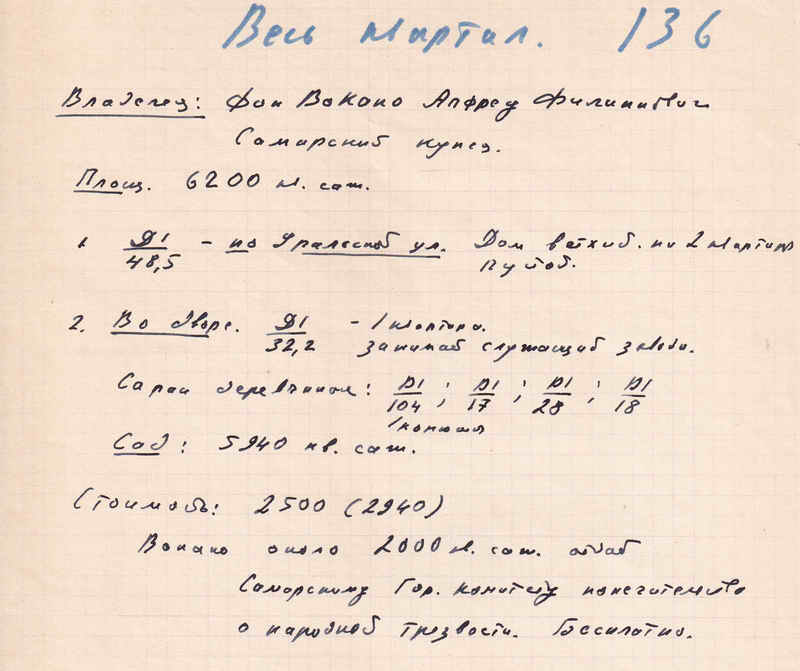 Весь квартал. 136
Владелец: Фон Вокано Альфред Филиппович
Самарский купец.
Площ. 6200 кв. саж.
1. Д1/48,5 - по Уральской ул. Дом ветхий. на 2 квартиры
пустой.
2. Во дворе. Д1/32,2 - 1 квартира.
занимаб служащий завода.
Сараи деревянные: Д1/104 ; Д1/17 ; Д1/28 ; Д1/18
1 конюшня
Сад: 5940 кв. саж.
Стоимость: 2500 (2940)
Вокано около 2000 кв. саж. отдал
Самарскому Гор. комитету попечительства
о народной трезвости. Бесплатно.